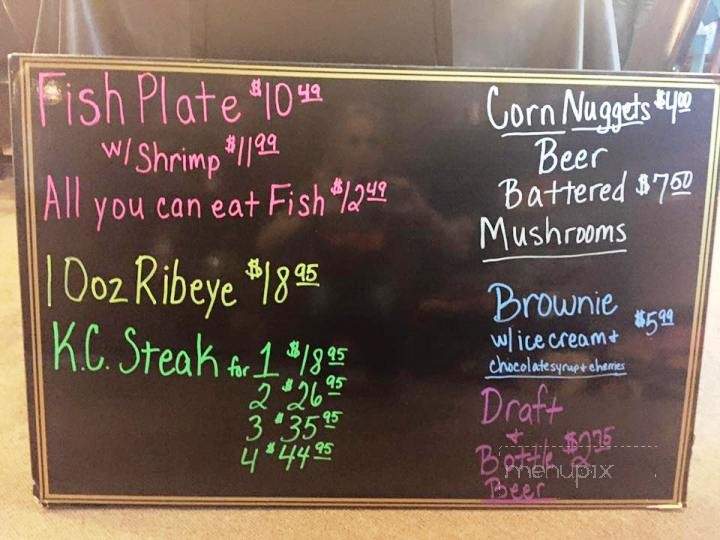 Fish Plate $10 49
w/ Shrimp $11 99
All you can eat Fish $12 49
10oz Ribeye $18 95
K.C. Steak for 1 $18 95
2 $26 95
3 $35 95
4 $44 95
Corn Nuggets $4 00
Beer
Battered $7 50
Mushrooms
Brownie
w/ ice cream + $5 99
chocolate syrup + cherries
Draft
+
Bottle $2 75
Beer
menupix